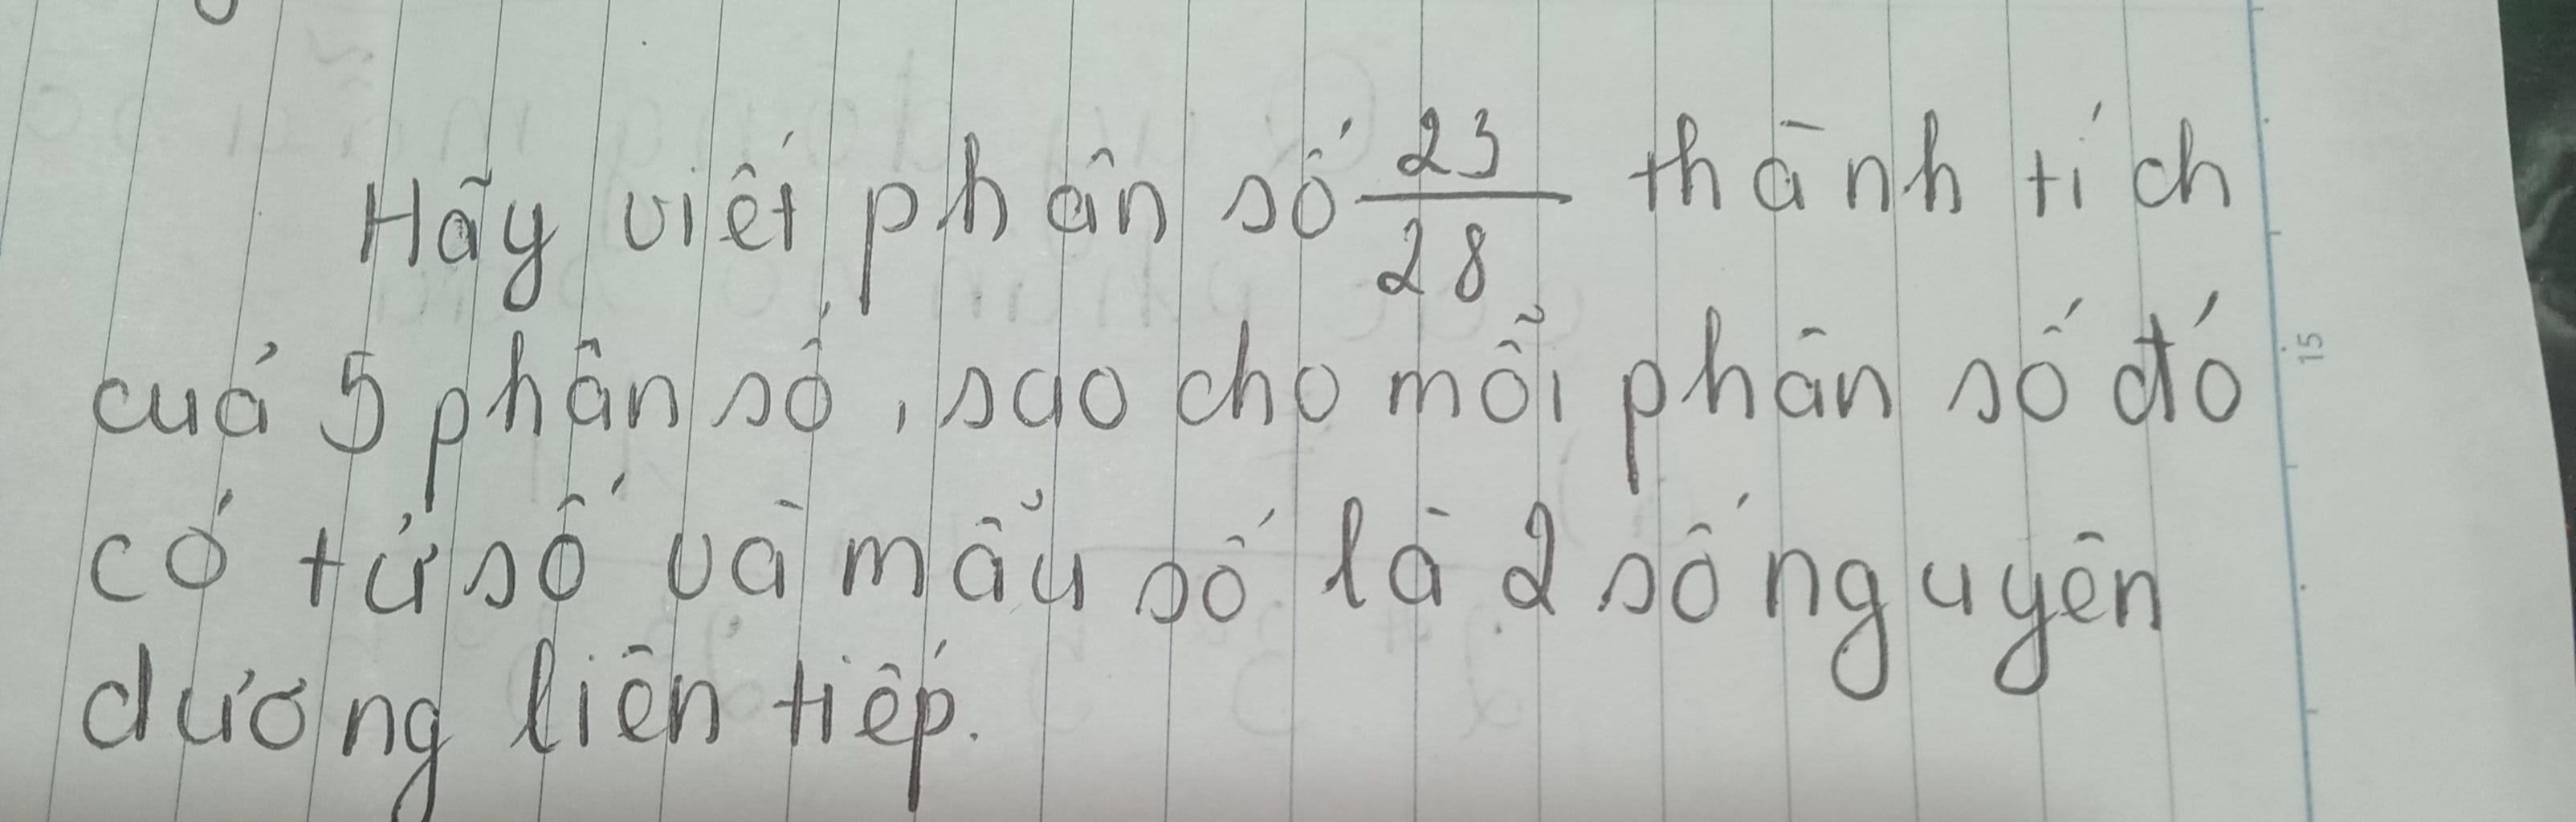 Hãy viết phân số 23/28 thành tích
của 5 phân số, sao cho mỗi phân số đó
có tử số và mẫu số là 2 số nguyên
dương liên tiếp.
15